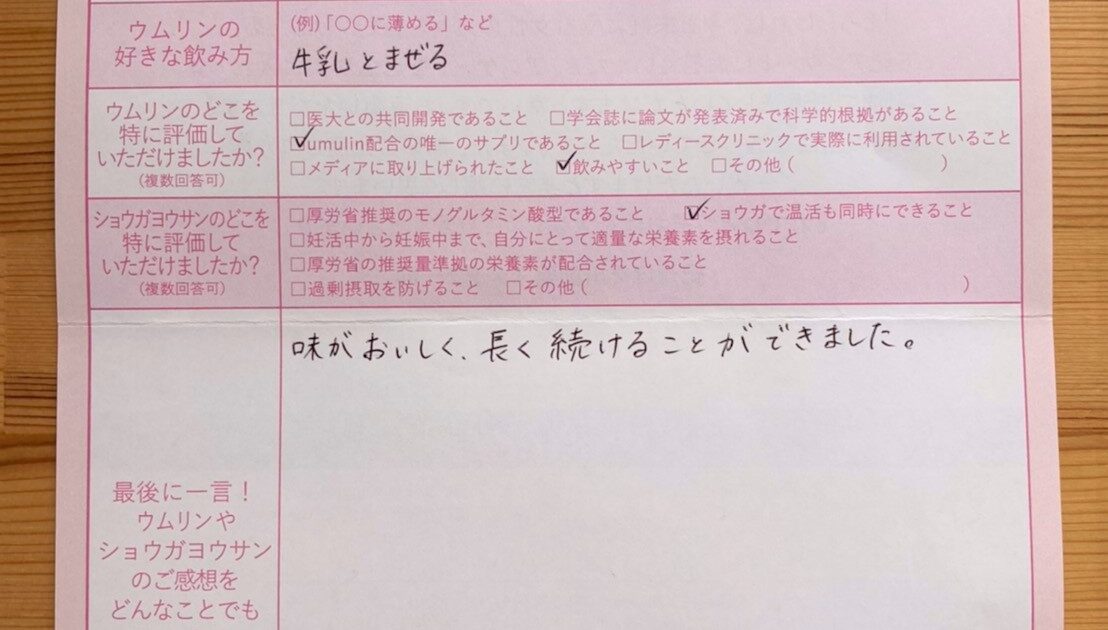 ウムリンの
好きな飲み方
(例)「〇〇に薄める」など
牛乳とまぜる
ウムリンのどこを
特に評価して
いただけましたか?
(複数回答可)
□医大との共同開発であること □学会誌に論文が発表済みで科学的根拠があること
☑umulin配合の唯一のサプリであること □レディースクリニックで実際に利用されていること
□メディアに取り上げられたこと ☑飲みやすいこと □その他( )
ショウガヨウサンのどこを
特に評価して
いただけましたか?
(複数回答可)
□厚労省推奨のモノグルタミン酸型であること ☑ショウガで温活も同時にできること
□妊活中から妊娠中まで、自分にとって適量な栄養素を摂れること
□厚労省の推奨量準拠の栄養素が配合されていること
□過剰摂取を防げること □その他( )
味がおいしく、長く続けることができました。
最後に一言!
ウムリンや
ショウガヨウサン
のご感想を
どんなことでも